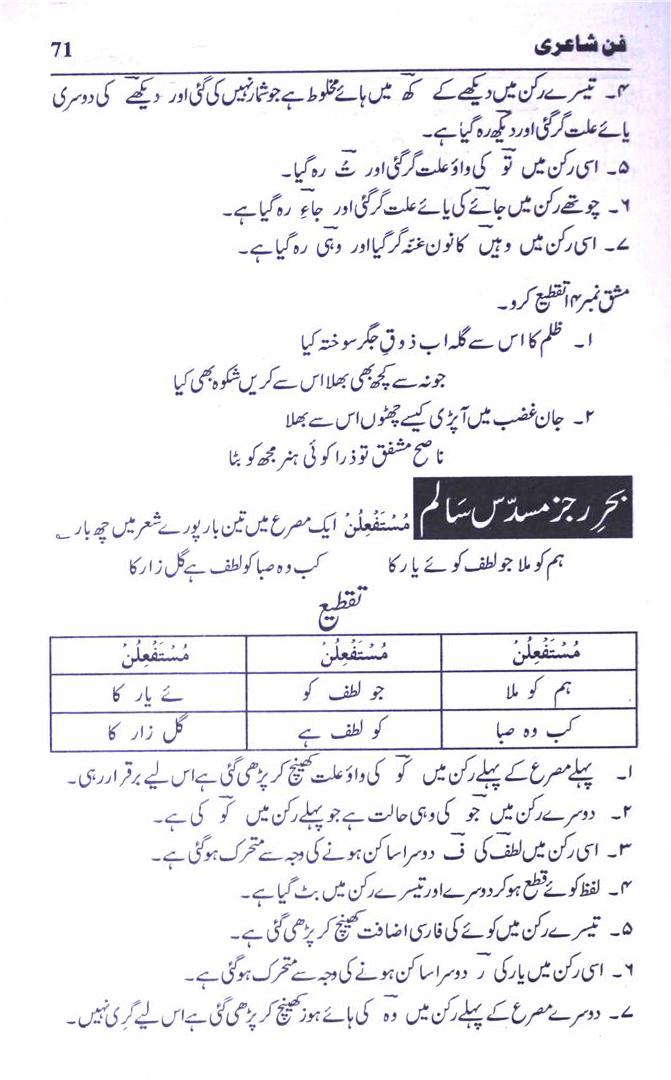 فن شاعری 71
۴۔ تیسرے رکن میں دیکھے کے کھ میں ہائے مخلوط ہے جو شمار نہیں کی گئی اور دیکھے کی دوسری
یائے علت گر گئی اور دیکھ رہ گیا ہے۔
۵۔ اسی رکن میں تو کی واؤ علت گر گئی اور تُ رہ گیا۔
۶۔ چوتھے رکن میں جائے کی یائے علت گر گئی اور جاءِ رہ گیا ہے۔
۷۔ اسی رکن میں وہیں کا نون غنّہ گر گیا اور وہی رہ گیا ہے۔
مشق نمبر ۱۴ تقطیع کرو۔
۱۔ ظلم کا اس سے گلہ اب ذوقِ جگر سوختہ کیا
جو نہ سے کچھ بھی بھلا اس سے کریں شکوہ بھی کیا
۲۔ جان غضب میں آ پڑی کیسے چھٹوں اس سے بھلا
ناصح مشفق تو ذرا کوئی ہنر مجھ کو بتا
بحرِ رجز مسدّس سَالم مُسْتَفْعِلُنْ ایک مصرع میں تین بار پورے شعر میں چھ بار ؎
ہم کو ملا جو لطف کوئے یار کا کب وہ صبا کو لطف ہے گل زار کا
تقطیع
مُسْتَفْعِلُنْ مُسْتَفْعِلُنْ مُسْتَفْعِلُنْ
ہم کو ملا جو لطف کو ئے یار کا
کب وہ صبا کو لطف ہے گل زار کا
۱۔ پہلے مصرع کے پہلے رکن میں کو کی واؤ علت کھینچ کر پڑھی گئی ہے اس لیے برقرار رہی۔
۲۔ دوسرے رکن میں جو کی وہی حالت ہے جو پہلے رکن میں کو کی ہے۔
۳۔ اسی رکن میں لطف کی ف دوسرا ساکن ہونے کی وجہ سے متحرک ہو گئی ہے۔
۴۔ لفظ کوئے قطع ہو کر دوسرے اور تیسرے رکن میں بٹ گیا ہے۔
۵۔ تیسرے رکن میں کوئے کی فارسی اضافت کھینچ کر پڑھی گئی ہے۔
۶۔ اسی رکن میں یار کی ر دوسرا ساکن ہونے کی وجہ سے متحرک ہو گئی ہے۔
۷۔ دوسرے مصرع کے پہلے رکن میں وہ کی ہائے ہوز کھینچ کر پڑھی گئی ہے اس لیے گری نہیں۔